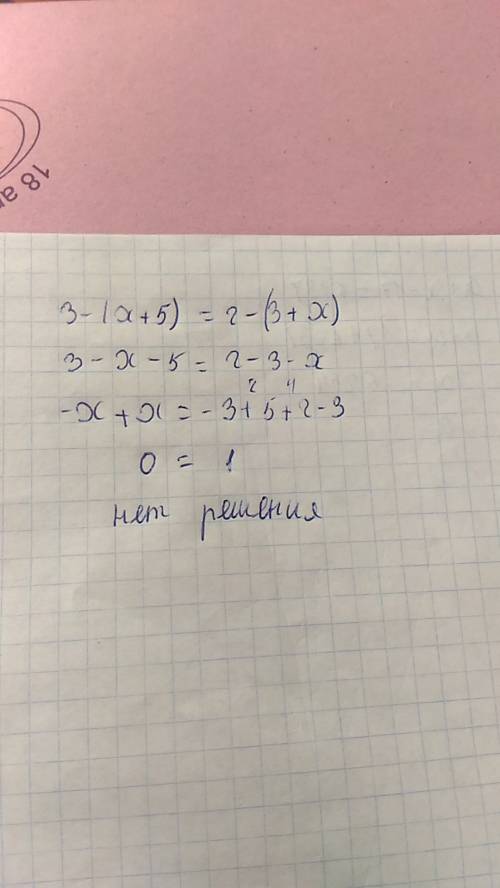 18 ап
3-(x+5) = 2-(3+x)
3-x-5 = 2-3-x
2 4
-x+x = -3+5+2-3
0 = 1
нет решения